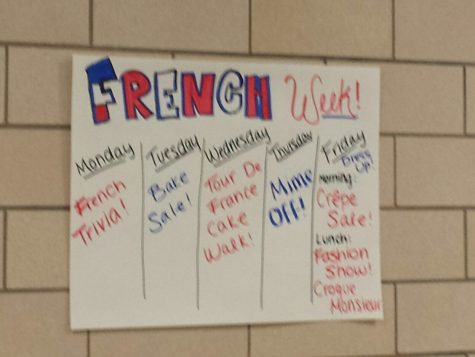 FRENCH Week!
Monday
French
Trivia!
Tuesday
Bake
Sale!
Wednesday
Tour De
France
Cake
Walk!
Thursday
Mime
OFF!
Friday
Dress
Up!
Morning:
Crêpe
Sale!
Lunch:
Fashion
Show!
Croque
Monsieur